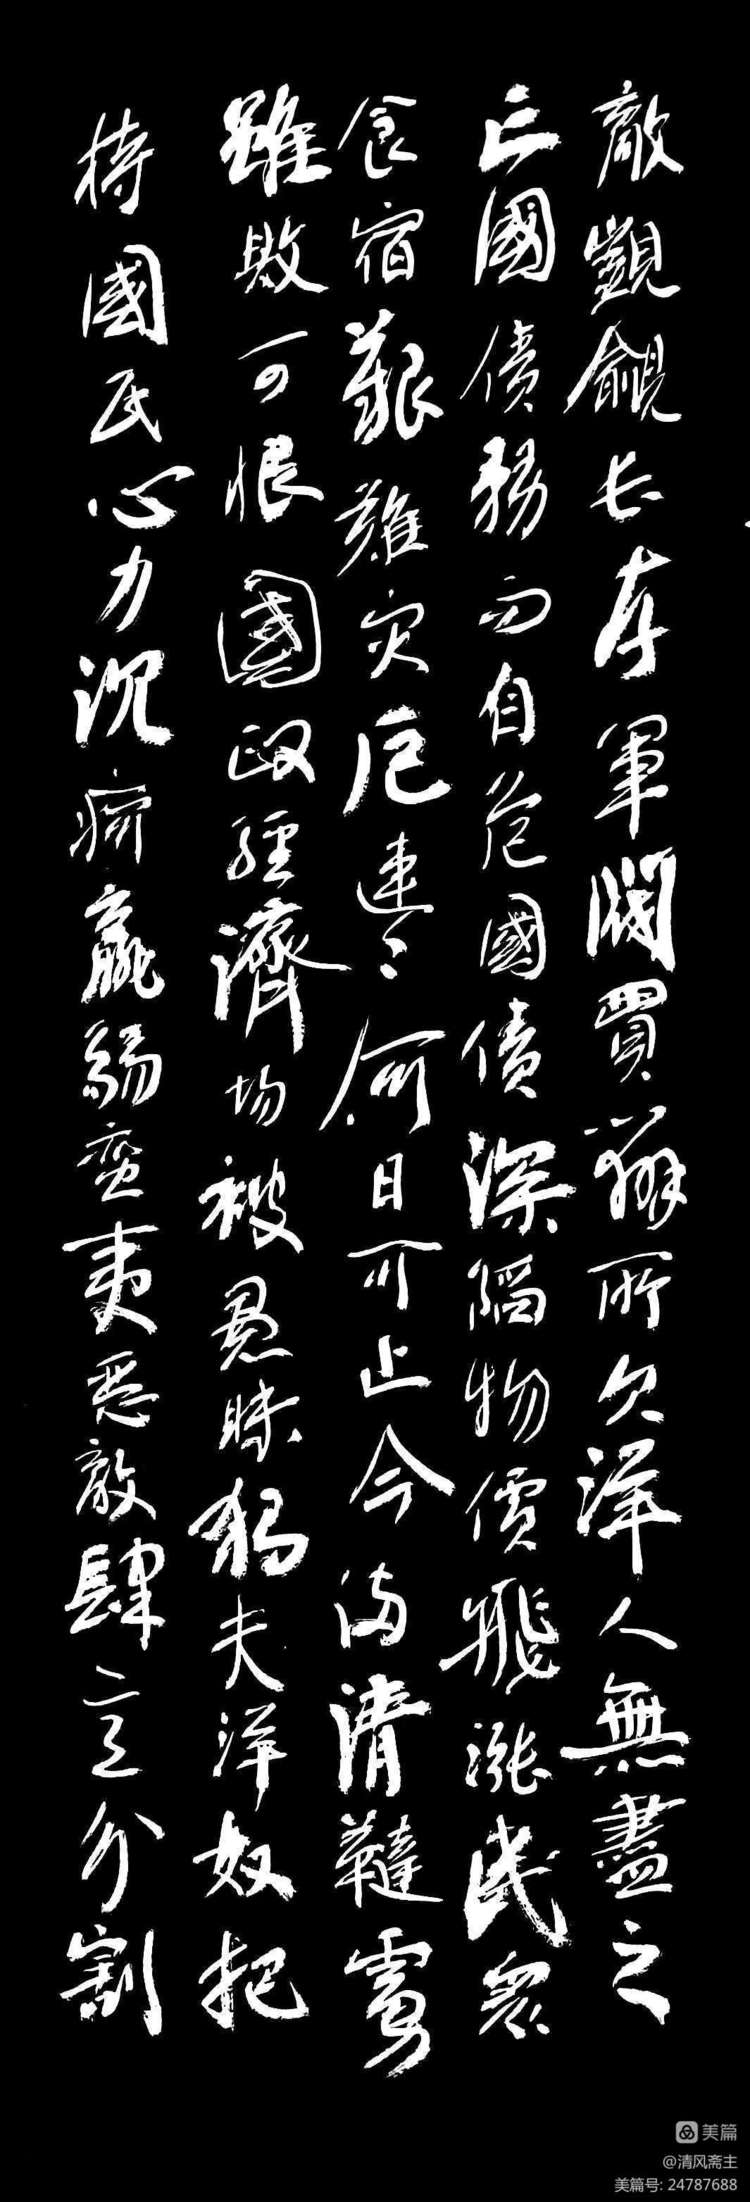 敵觀覦長存軍閥買辦所欠洋人無盡之
亡國債務而自范國債深陷物價飛漲民衆
食宿艱難灾厄連〻何日可止今満清韃虜
雖敗可恨國政經濟均被愚昧獨夫洋奴把
持國民心力沉痾羸弱蛮夷惡敵肆意分割
美篇
@清风斋主
美篇号: 24787688